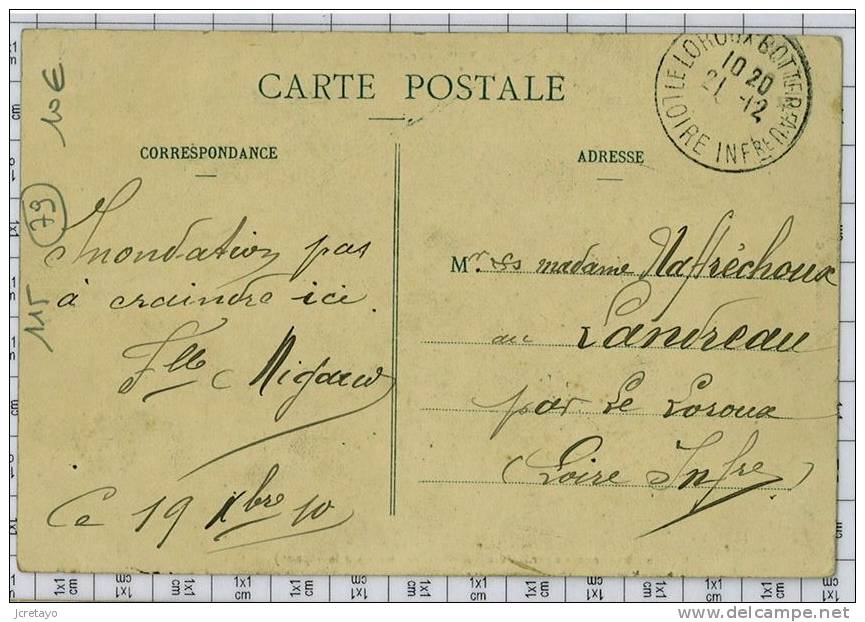 CARTE POSTALE
CORRESPONDANCE
ADRESSE
LE LOROUX BOTTEREAU
10 20
21 -12
LOIRE INFRE
10€
79
115
Inondation pas
à craindre ici
Flle Rigaud
Ce 19 Xbre 10
Mr & madame Naffréchoux
au Landreau
par Le Loroux
(Loire Infre)
1x1 cm
jcretayo
delcampe.net